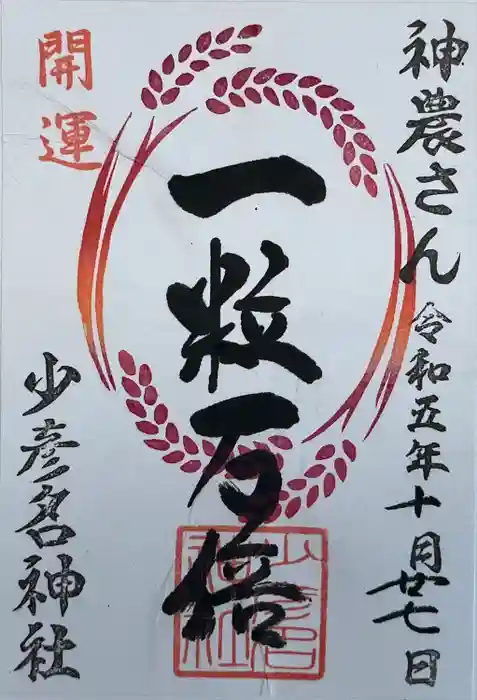 神農さん
令和五年十月廿七日
一粒万倍
開運
少彦名神社